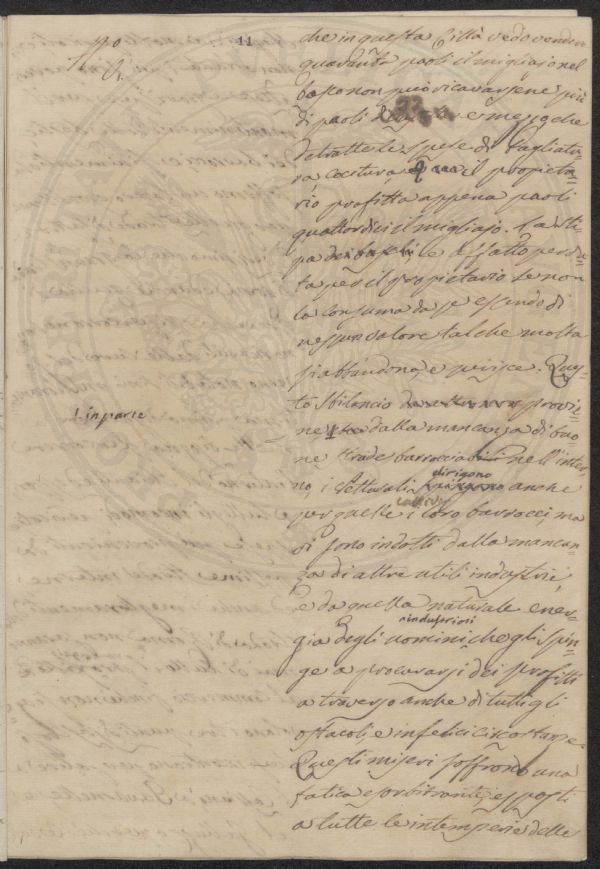 11
che in questa Città vedo vender
quaranta paoli il migliajo nel
bosco non può ricavarsene più
di paoli e mezzo che
detratte le spese di Tagliatu=
ra Cocitura il proprieta=
rio profitta appena paoli
quattordici il migliajo. La sti
pa de' boschi è affatto perdu=
ta per il proprietario se non
la consuma da se essendo di
nessun valore talche molta
si abbandona e perisce. Ques=
to sbilancio provie=
1. in parte
ne dalla mancanza di buo
ne strade barrocciabili nell'inter
no, i Vetturali dirigono anche
per quelle cattive i loro barrocci, ma
vi sono indotti dalla mancan
za di altre utili industrie,
e da quella naturale ener=
gia degli uomini industriosi che gli spin
ge a procurarsi dei profitti
a traverso anche di tutti gli
ostacoli e infelici circostanze.
Questi miseri soffrono una
fatica esorbitante, esposti
a tutte le intemperie delle